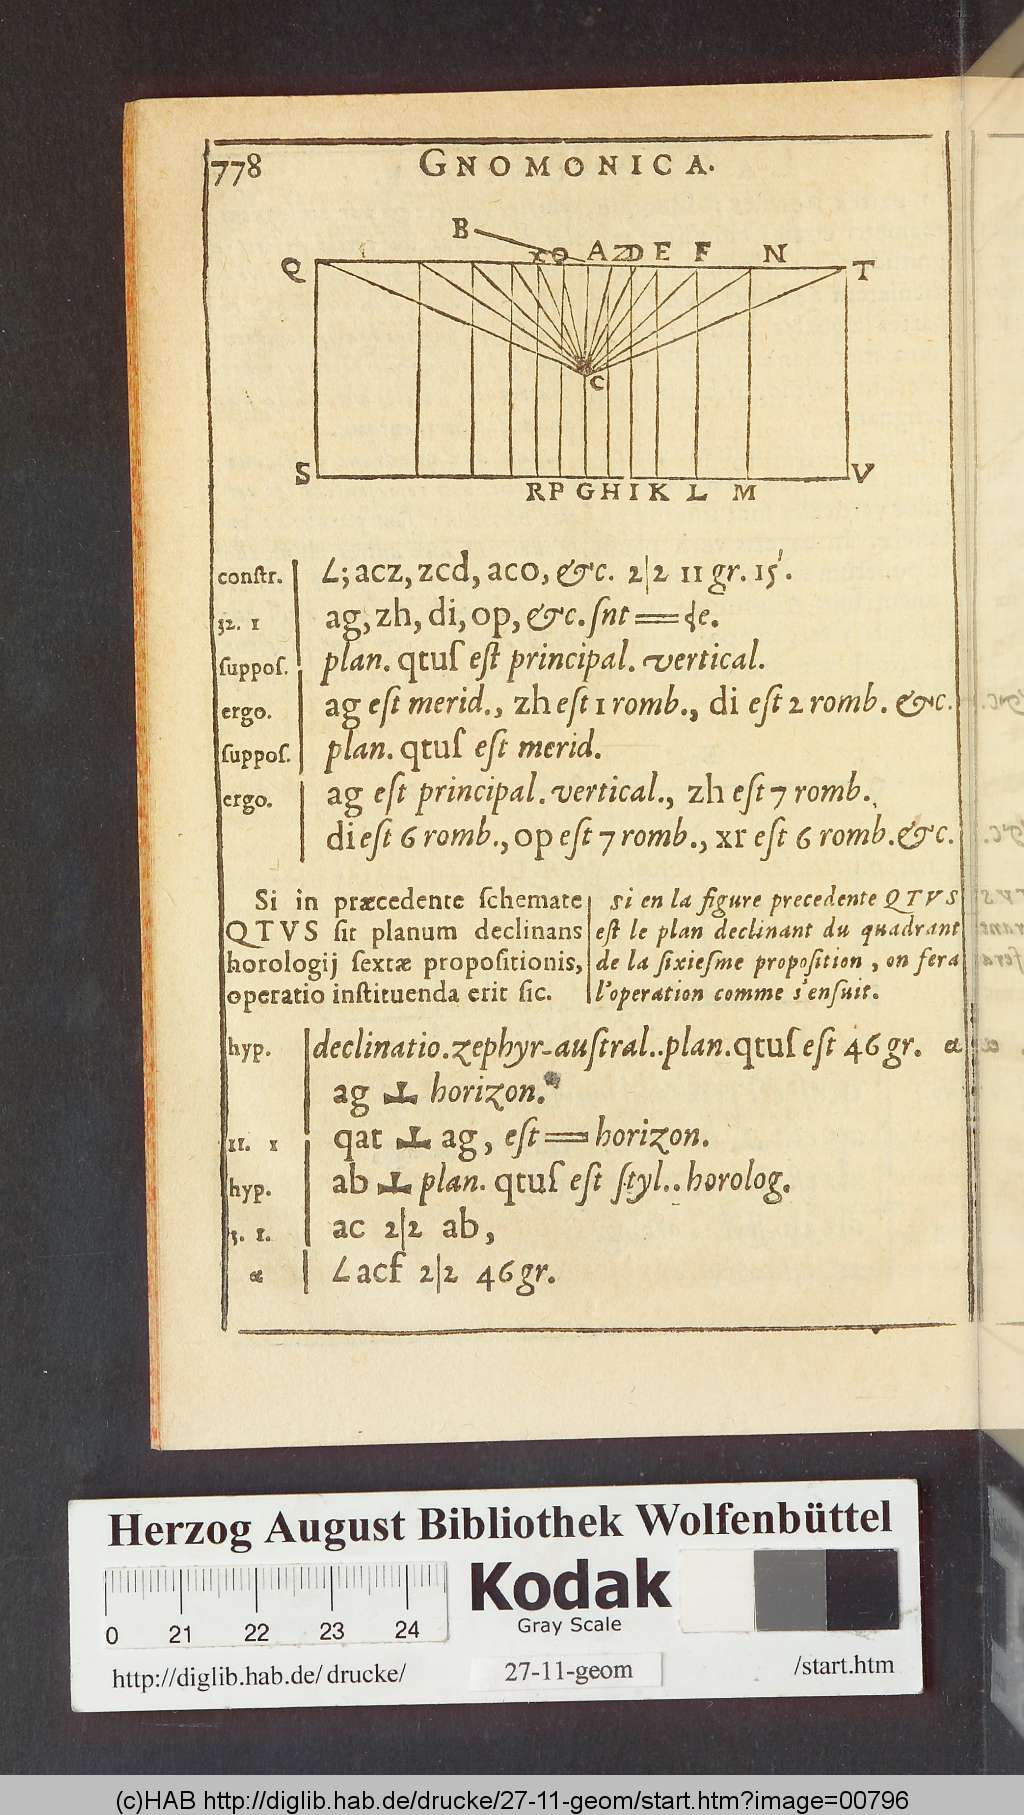 778 GNOMONICA.
B
Q XO AZD E F N T
C
S RP G H I K L M V
constr. L; acz, zcd, aco, &c. 2|2 11 gr. 15'.
32. 1 ag, zh, di, op, &c. snt == de.
suppos. plan. qtuſ eſt principal. vertical.
ergo. ag eſt merid., zh eſt 1 romb., di eſt 2 romb. &c.
suppos. plan. qtuſ eſt merid.
ergo. ag eſt principal. vertical., zh eſt 7 romb.,
di eſt 6 romb., op eſt 7 romb., xr eſt 6 romb. &c.
Si in præcedente ſchemate
QTVS ſit planum declinans
horologij ſextæ propoſitionis,
operatio inſtituenda erit ſic.
Si en la figure precedente QTVS
eſt le plan declinant du quadrant
de la ſixieſme propoſition, on fera
l'operation comme s'enſuit.
hyp. declinatio. zephyr-auſtral..plan. qtuſ eſt 46 gr. α
ag ⊥ horizon.
11. 1 qat ⊥ ag, eſt == horizon.
hyp. ab ⊥ plan. qtuſ eſt ſtyl.. horolog.
3. 1. ac 2|2 ab,
α L acf 2|2 46 gr.
Herzog August Bibliothek Wolfenbüttel
Kodak
Gray Scale
0 21 22 23 24
http://diglib.hab.de/ drucke/ 27-11-geom /start.htm
(c)HAB http://diglib.hab.de/drucke/27-11-geom/start.htm?image=00796